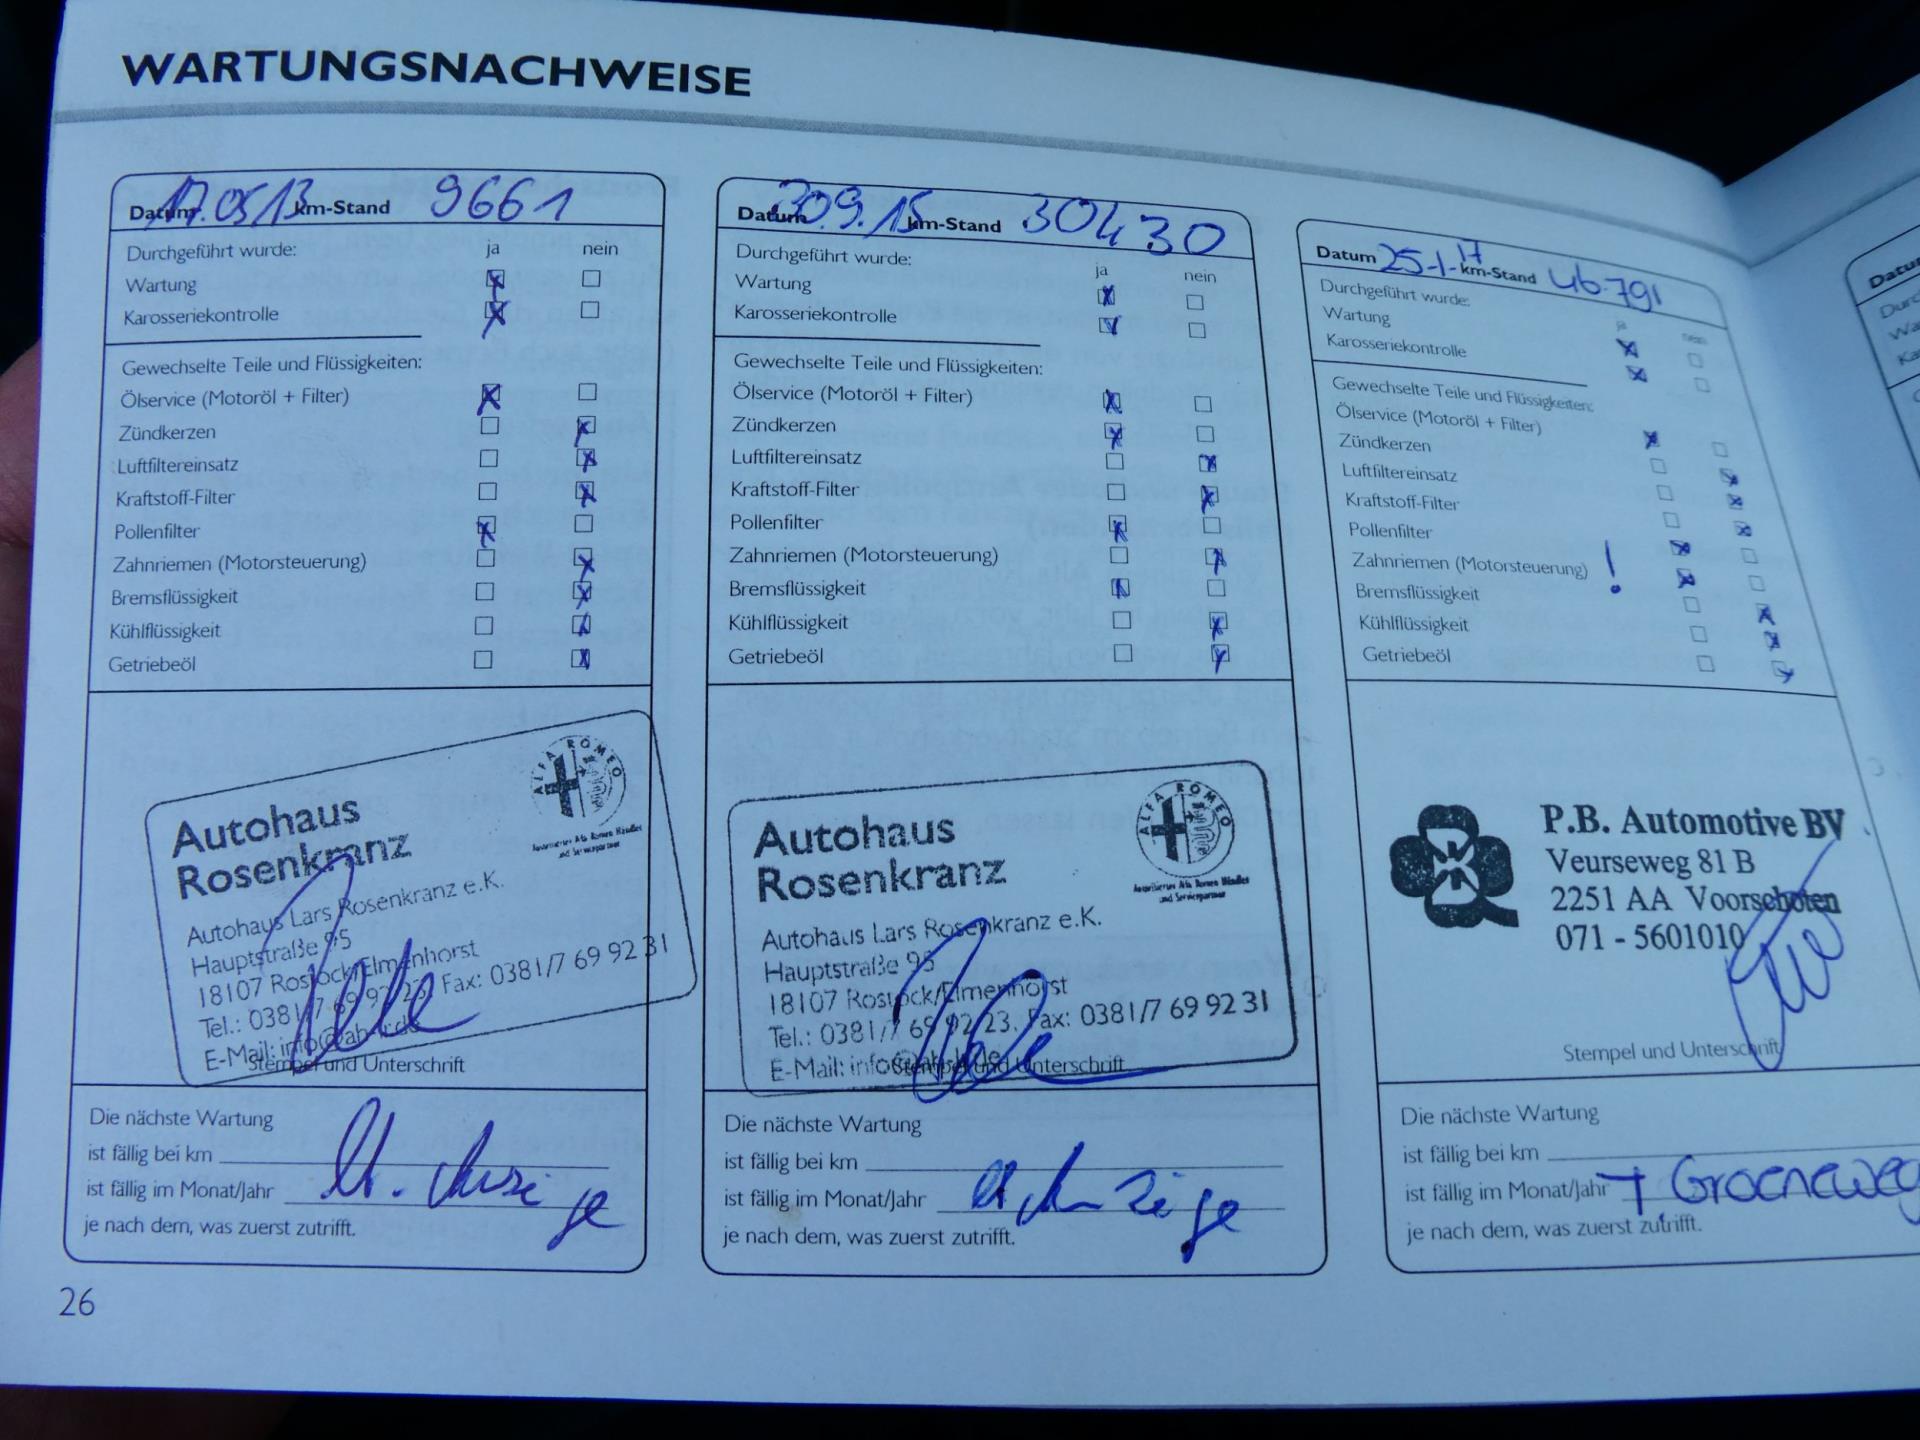 WARTUNGSNACHWEISE
Datum 17.05.13 km-Stand 9661
Durchgeführt wurde: ja nein
Wartung
Karosseriekontrolle
Gewechselte Teile und Flüssigkeiten:
Ölservice (Motoröl + Filter)
Zündkerzen
Luftfiltereinsatz
Kraftstoff-Filter
Pollenfilter
Zahnriemen (Motorsteuerung)
Bremsflüssigkeit
Kühlflüssigkeit
Getriebeöl
ALFA ROMEO
Autorisierter Alfa Romeo Händler
und Servicepartner
Autohaus
Rosenkranz
Autohaus Lars Rosenkranz e.K.
Hauptstraße 95
18107 Rostock/Elmenhorst
Tel.: 0381/7 69 92 23, Fax: 0381/7 69 92 31
E-Mail: info@ab-lr.de
Stempel und Unterschrift
Die nächste Wartung
ist fällig bei km
ist fällig im Monat/Jahr lt. Anzeige
je nach dem, was zuerst zutrifft.
Datum 30.9.15 km-Stand 30430
Durchgeführt wurde: ja nein
Wartung
Karosseriekontrolle
Gewechselte Teile und Flüssigkeiten:
Ölservice (Motoröl + Filter)
Zündkerzen
Luftfiltereinsatz
Kraftstoff-Filter
Pollenfilter
Zahnriemen (Motorsteuerung)
Bremsflüssigkeit
Kühlflüssigkeit
Getriebeöl
ALFA ROMEO
Autorisierter Alfa Romeo Händler
und Servicepartner
Autohaus
Rosenkranz
Autohaus Lars Rosenkranz e.K.
Hauptstraße 95
18107 Rostock/Elmenhorst
Tel.: 0381/7 69 92 23, Fax: 0381/7 69 92 31
E-Mail: info@ab-lr.de
Stempel und Unterschrift
Die nächste Wartung
ist fällig bei km
ist fällig im Monat/Jahr lt. Anzeige
je nach dem, was zuerst zutrifft.
Datum 25-1-17 km-Stand 46.791
Durchgeführt wurde: ja nein
Wartung
Karosseriekontrolle
Gewechselte Teile und Flüssigkeiten:
Ölservice (Motoröl + Filter)
Zündkerzen
Luftfiltereinsatz
Kraftstoff-Filter
Pollenfilter
Zahnriemen (Motorsteuerung) !
Bremsflüssigkeit
Kühlflüssigkeit
Getriebeöl
P.B. Automotive BV
Veurseweg 81 B
2251 AA Voorschoten
071 - 5601010
Stempel und Unterschrift
Die nächste Wartung
ist fällig bei km
ist fällig im Monat/Jahr T. Groeneweg
je nach dem, was zuerst zutrifft.
26